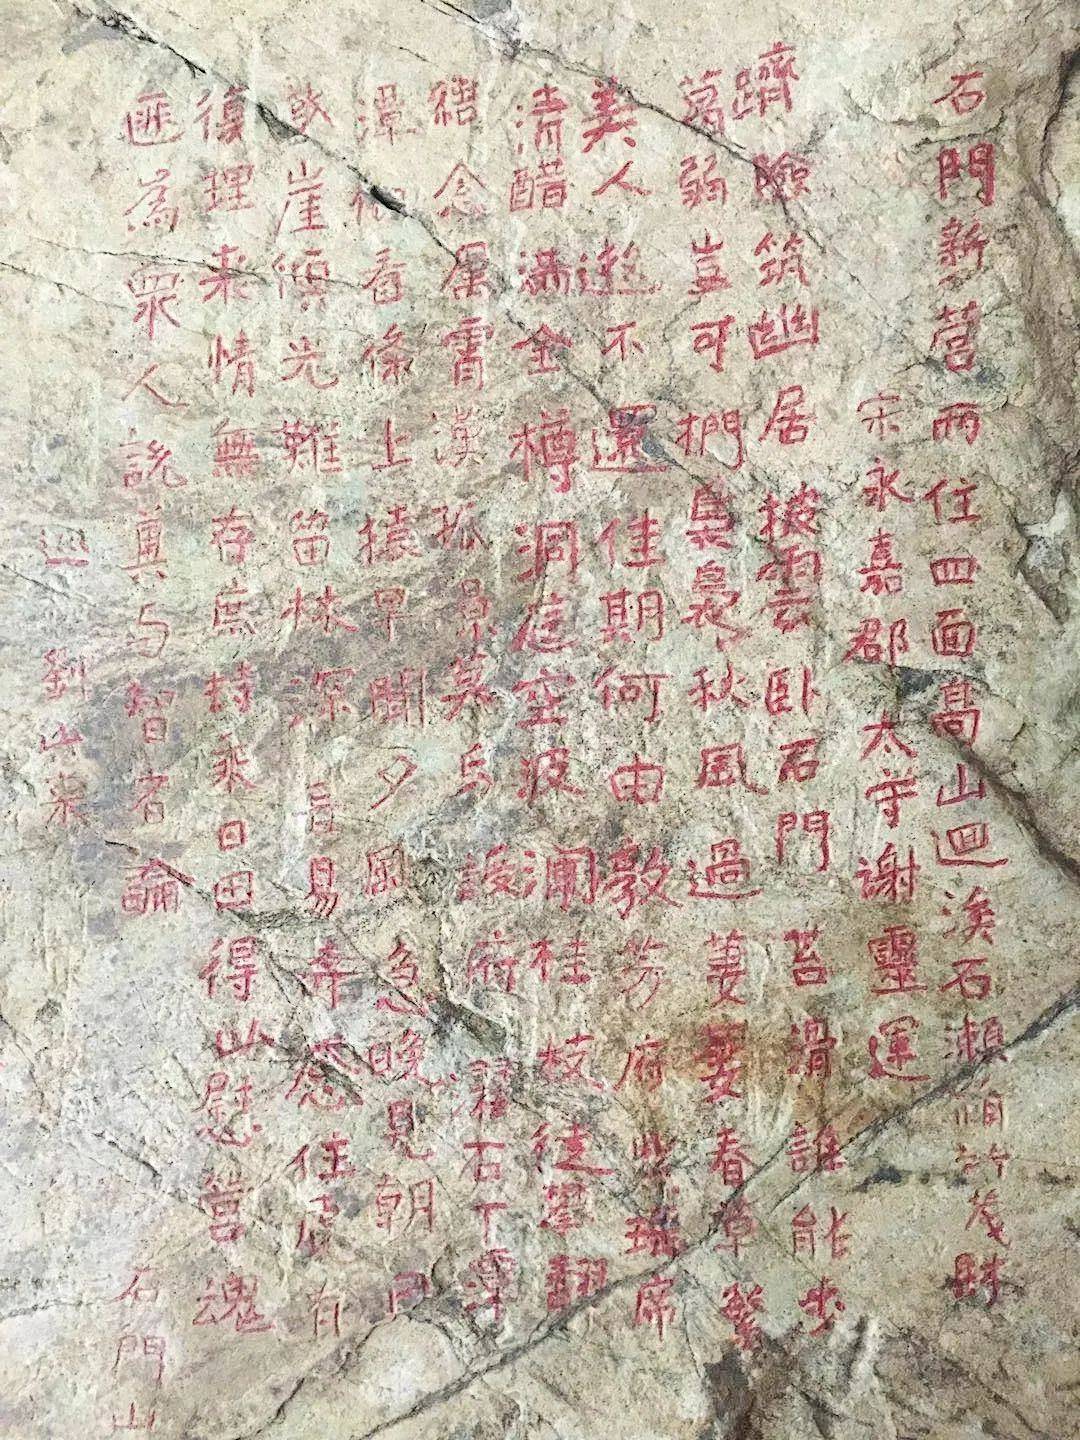 石門新營所住四面高山迴溪石瀨脩竹茂林
宋永嘉郡太守謝靈運
躋險筑幽居披雲卧石門苔滑誰能步
葛弱豈可捫裊裊秋風過萋萋春草繁
美人遊不還佳期何由敦芳瑤席
清醋滿金樽洞庭空波瀾桂枝徒攀翻
結念屬霄漢孤景莫与諼俯濯石下潭
潭仰看條上猿早聞夕風急晚見朝日
暾崖傾光難留林深響易奔感往慮有
復理來情無存庶持乘日用得以慰營魂
匪為眾人說冀与智者論 石門山
巡 劉山泉